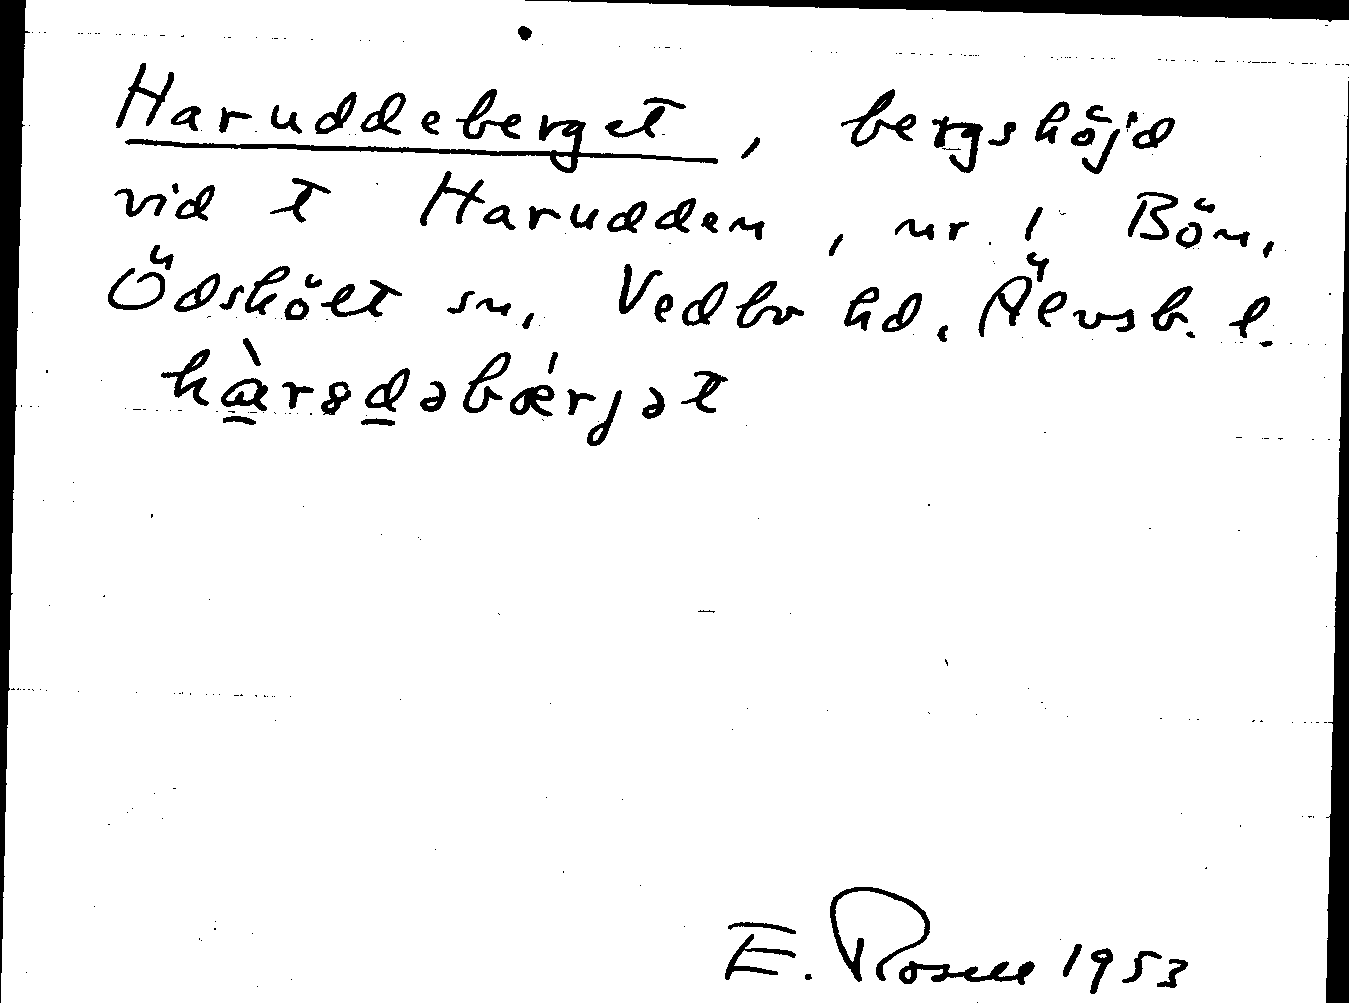 Haruddeberget, bergshöjd
vid t Harudden, nr 1 Bön,
Ödskölt sn, Vedbo hd. Älvsb. l.
hàrsdəbǽrjət
E. Rosell 1953